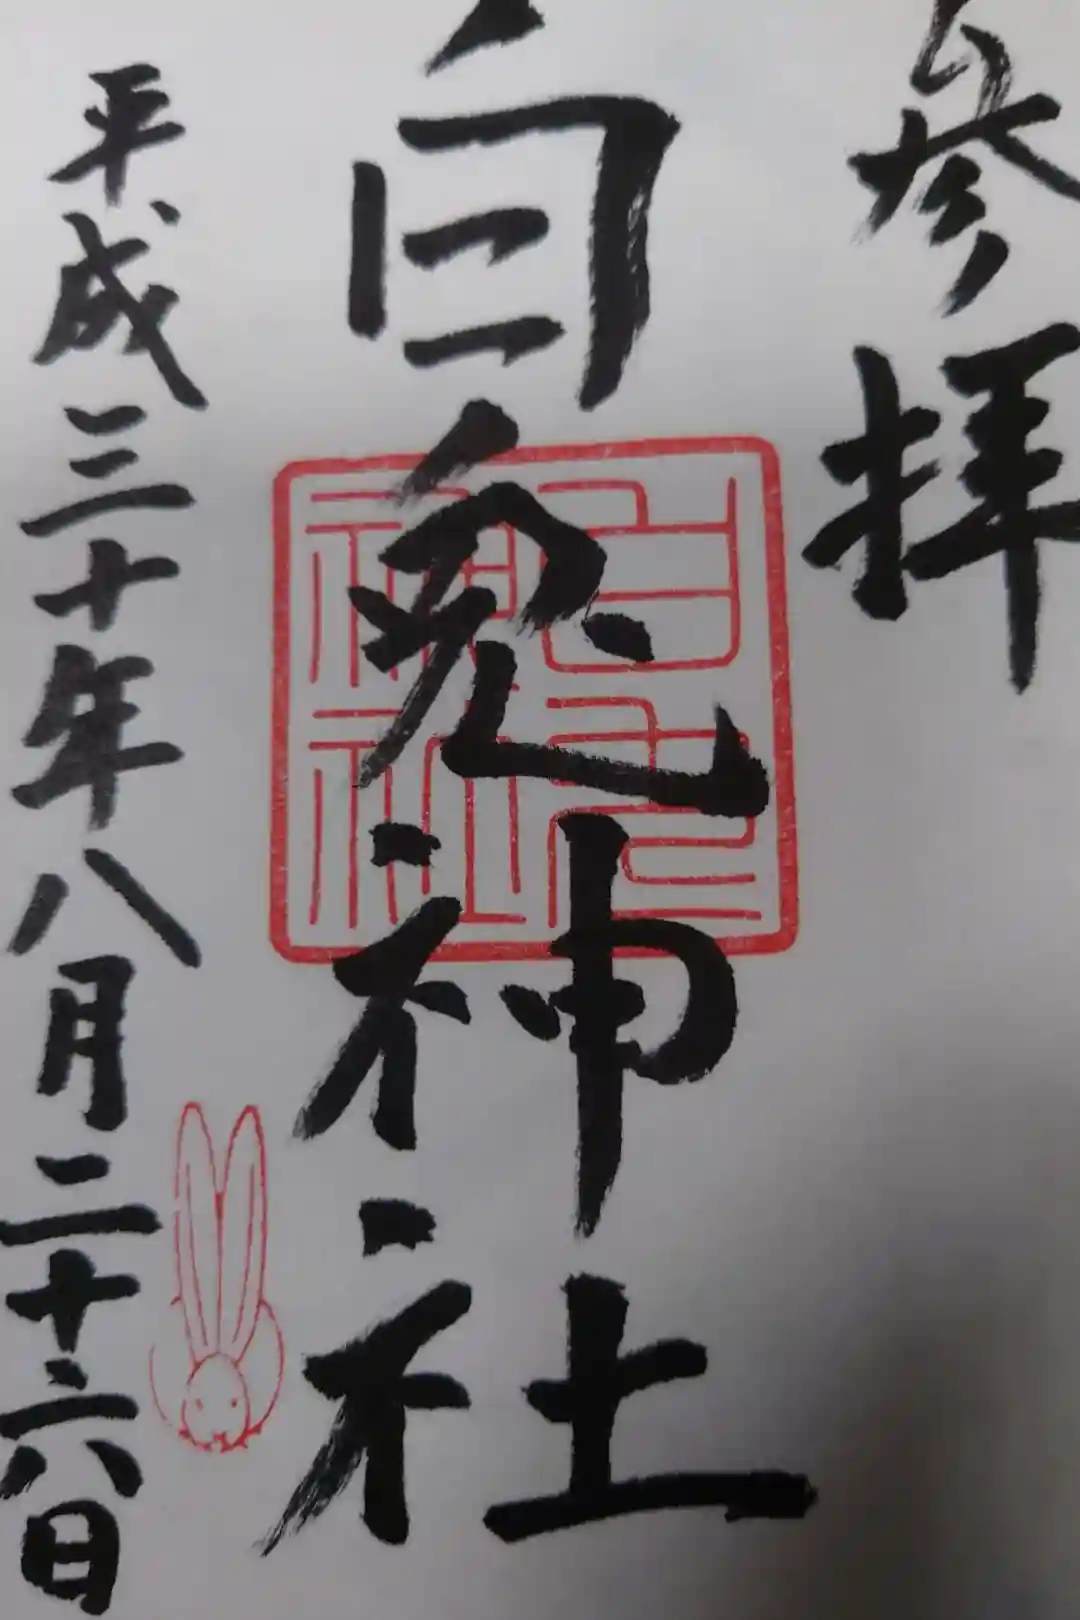 參拝
白兎神社
白兎神社
平成三十年八月二十六日